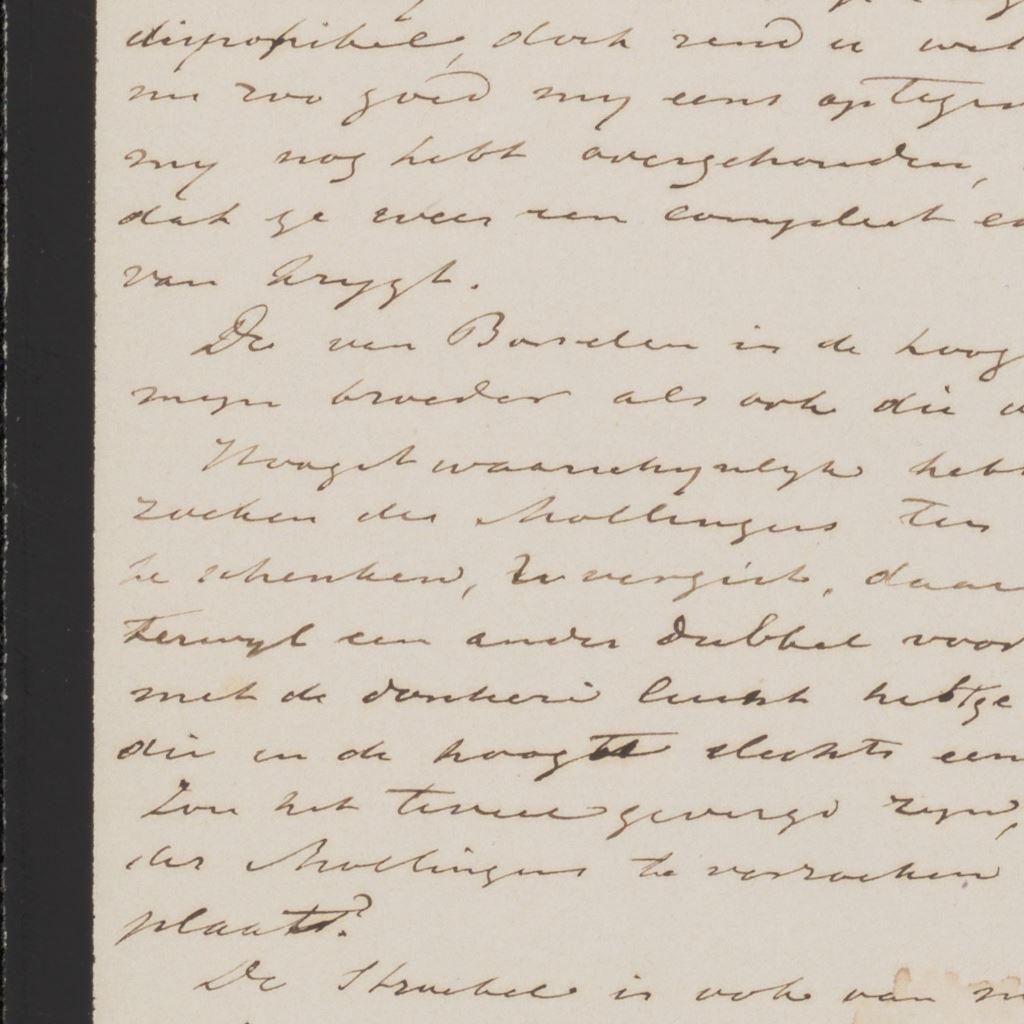 disponibel, doch zend u wel
nu zoo goed my eens op te gev
my nog hebt overgehouden,
dat ge weer een compleet ex
van krygt.
De van Borselen is de hoog
mijn broeder als ook die
Hoogst waarschynlyk hebt
zoeken des Mollingers ten
te schenken, u vergist, daar
terwyl een ander dubbel voor
met de donkere lucht hebt ge
die in de hoogte slechts een
Zou het teveel gevergd zyn,
des Mollingers te verzoeken
plaats?
De Stroebel is ook van m